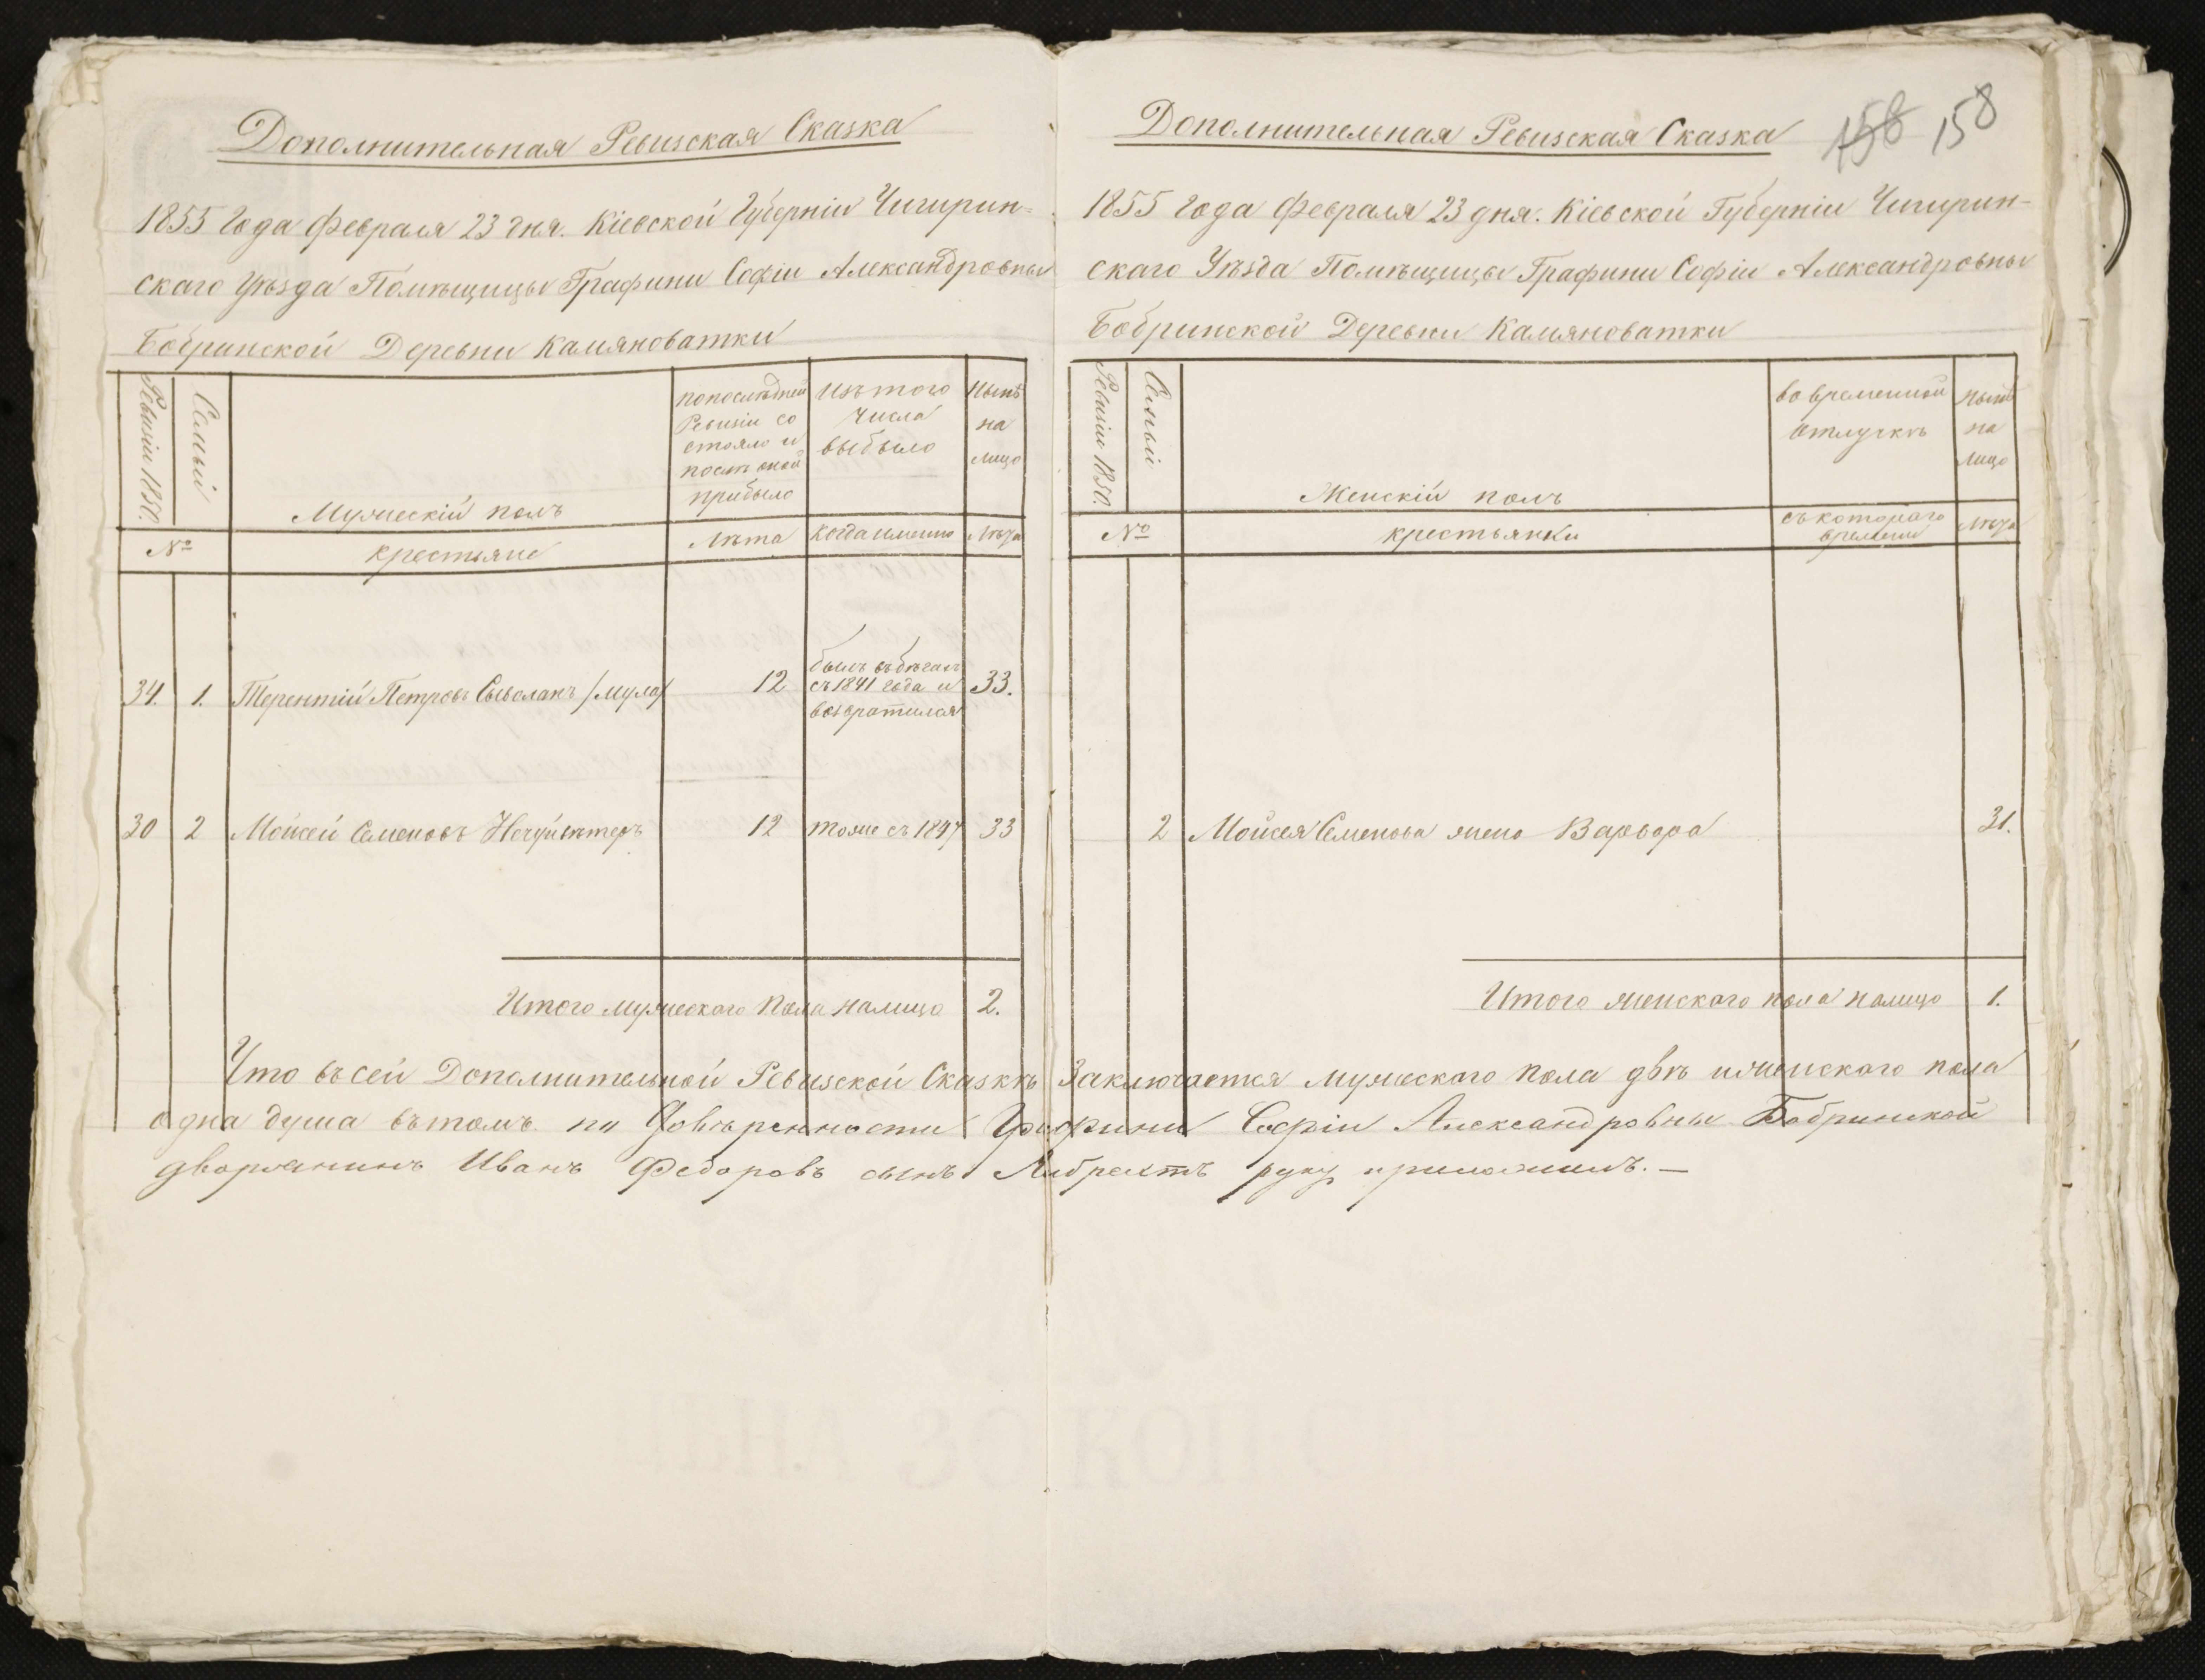 Дополнительная Ревизская Сказка
1855 Года Февраля 23 дня. Кіевской Губерніи Чигирин-
скаго Уѣзда Помѣщицы Графини Софіи Александровны
Бобринской Деревни Камяноватки
Ревизіи 1850.
Семьи
Мужескій полъ
по послѣдней
Ревизіи со
стояло и
послѣ оной
прибыло
Изъ того
числа
выбыло
Нынѣ
на
лицо
№
крестьяне
Лѣта
когда именно
Лѣта
34. 1. Терентій Петровъ /Мула/ 12
былъ въ бѣгахъ
съ 1841 года и
возвратился
33.
30 2 Мойсей Семеновъ 12 тоже съ 1847 33
Итого мужескаго пола налицо 2.
Дополнительная Ревизская Сказка
158 158
1855 года Февраля 23 дня. Кіевской Губерніи Чигирин-
скаго Уѣзда Помѣщицы Графини Софіи Александровны
Бобринской Деревни Камяноватки
Ревизіи 1850.
Семьи
Женскій полъ
во временной
отлучкѣ
нынѣ
на
лицо
№
крестьянки
съ котораго
времени
Лѣта
2 Мойсея Семенова жена Варвара 31.
Итого женскаго пола налицо 1.
Что въ сей Дополнительной Ревизской Сказкѣ Заключается мужескаго пола двѣ и женскаго пола
одна душа въ томъ по Довѣренности Графини Софіи Александровны Бобринской
дворянинъ Иванъ Федоровъ сынъ руку приложилъ. —